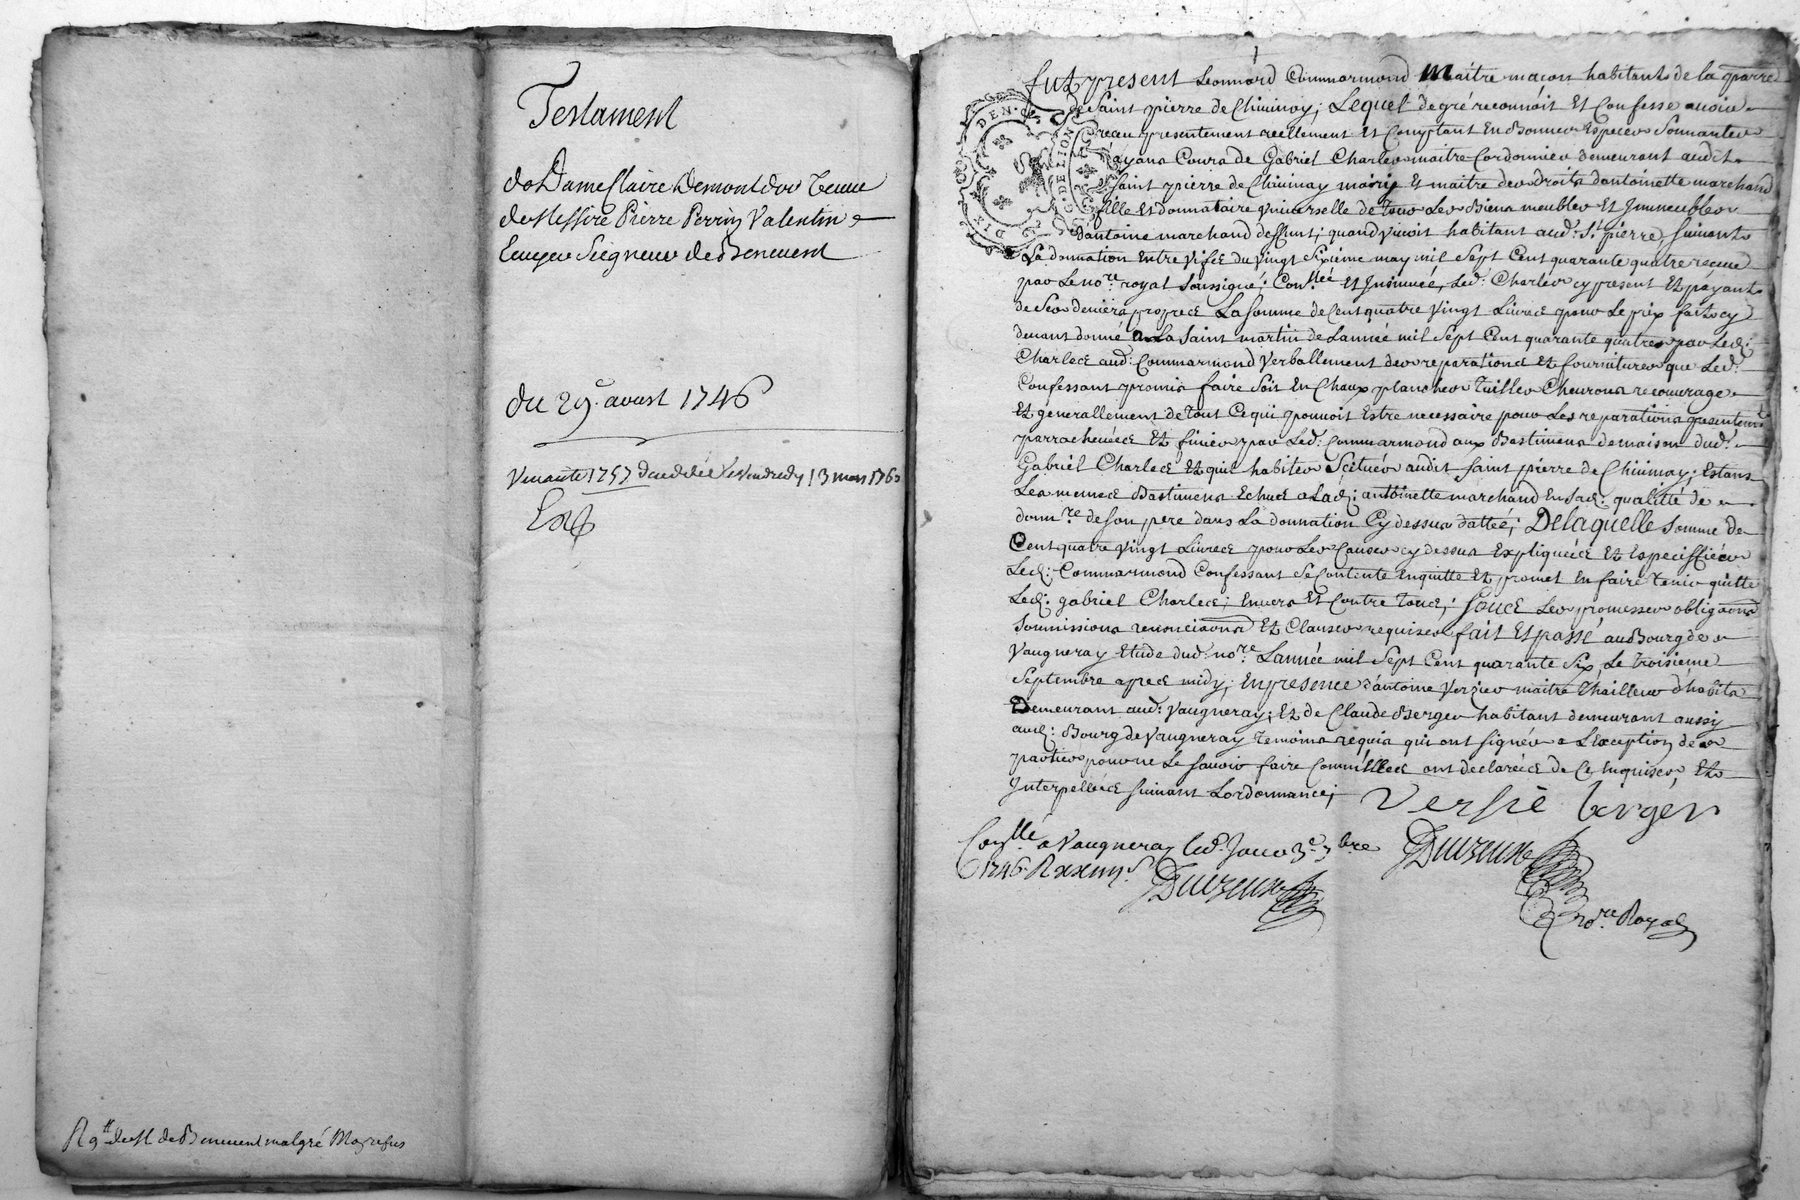 Testament
de Dame Claire Demontdor veuve
de Messire Pierre Perrin Valentin
Ecuyer Seigneur de Benevent
du 29.e aoust 1746
Vacante 1757 Vendredy 13 mars 1760
R 9tt de M de Benevent malgré
fut present Leonnard Commarmond Maitre macon habitant de la parre
de Saint pierre de Chivinay; Lequel de gré reconnoit Et Confesse avoir
receu presentement reellement Et Comptant En Bonnes Especes Sonnantes
ayans Cours de Gabriel Charles maitre Cordonnier demeurant audit
Saint pierre de Chivinay mary Et maitre des droits dantoinette marchand
fille Et donnataire Universelle de tous Les Biens meubles Et Jmmeubles
dantoine marchand deffunt; quand vivoit habitant aud: St pierre, suivant
La donnation Entre vifs du vingt Sixieme may mil Sept Cent quarante quatre receue
par Le nore royal Soussigné; Conllée Et Jnsinuée, Led: Charles cy present Et payant
de Ses deniers propres La Somme de Cent quatre vingt Livres pour Le prix fait cy
devant donné a La Saint martin de Lannée mil Sept Cent quarante quatre par Led:
Charles aud: Commarmond verballement des reparations Et fournitures que Led:
Confessant promis faire Soit En Chaux planches Tuilles Chevrons recouvrage
Et generallement de tout Ce qui pouvoit Estre necessaire pour Les reparations
parrachevées Et finies par Led: Commarmond aux Bastimens de maison dud:
Gabriel Charles Et quil habite Scitués audit Saint pierre de Chivinay; Estans
Les memes Bastimens Echus a Lad: antoinette marchand En Sad: qualitté de
donnre de Son pere dans La donnation Cy dessus dattée; De laquelle Somme de
Cent quatre vingt Livres pour Les Causes cy dessus Expliquées Et Especiffiées
Led: Commarmond Confessant Se Contente En quitte Et promet En faire tenir quitte
Led: gabriel Charles; Envers Et Contre tous; Sous Les promesses obligaons
Soumissions renonciaons Et Clauses requises fait Et passé au Bourg de
Vaugneray Etude dud: nore Lannée mil Sept Cent quarante Six Le troisieme
Septembre apres midy; En presence dantoine Verzier maitre Thailleur dhabits
Demeurant aud: Vaugneray; Et de Claude Berger habitant demeurant aussy
aud: Bourg de Vaugneray temoins requis qui ont signés a Lexception des
parties pour ne Le Savoir faire Comme Elles ont declarées de Ce Enquises, Et
Jnterpellées suivant Lordonnance;
Versie berger
Conllé a Vaugneray led. Jour 3e 7bre
1746
nore Royal